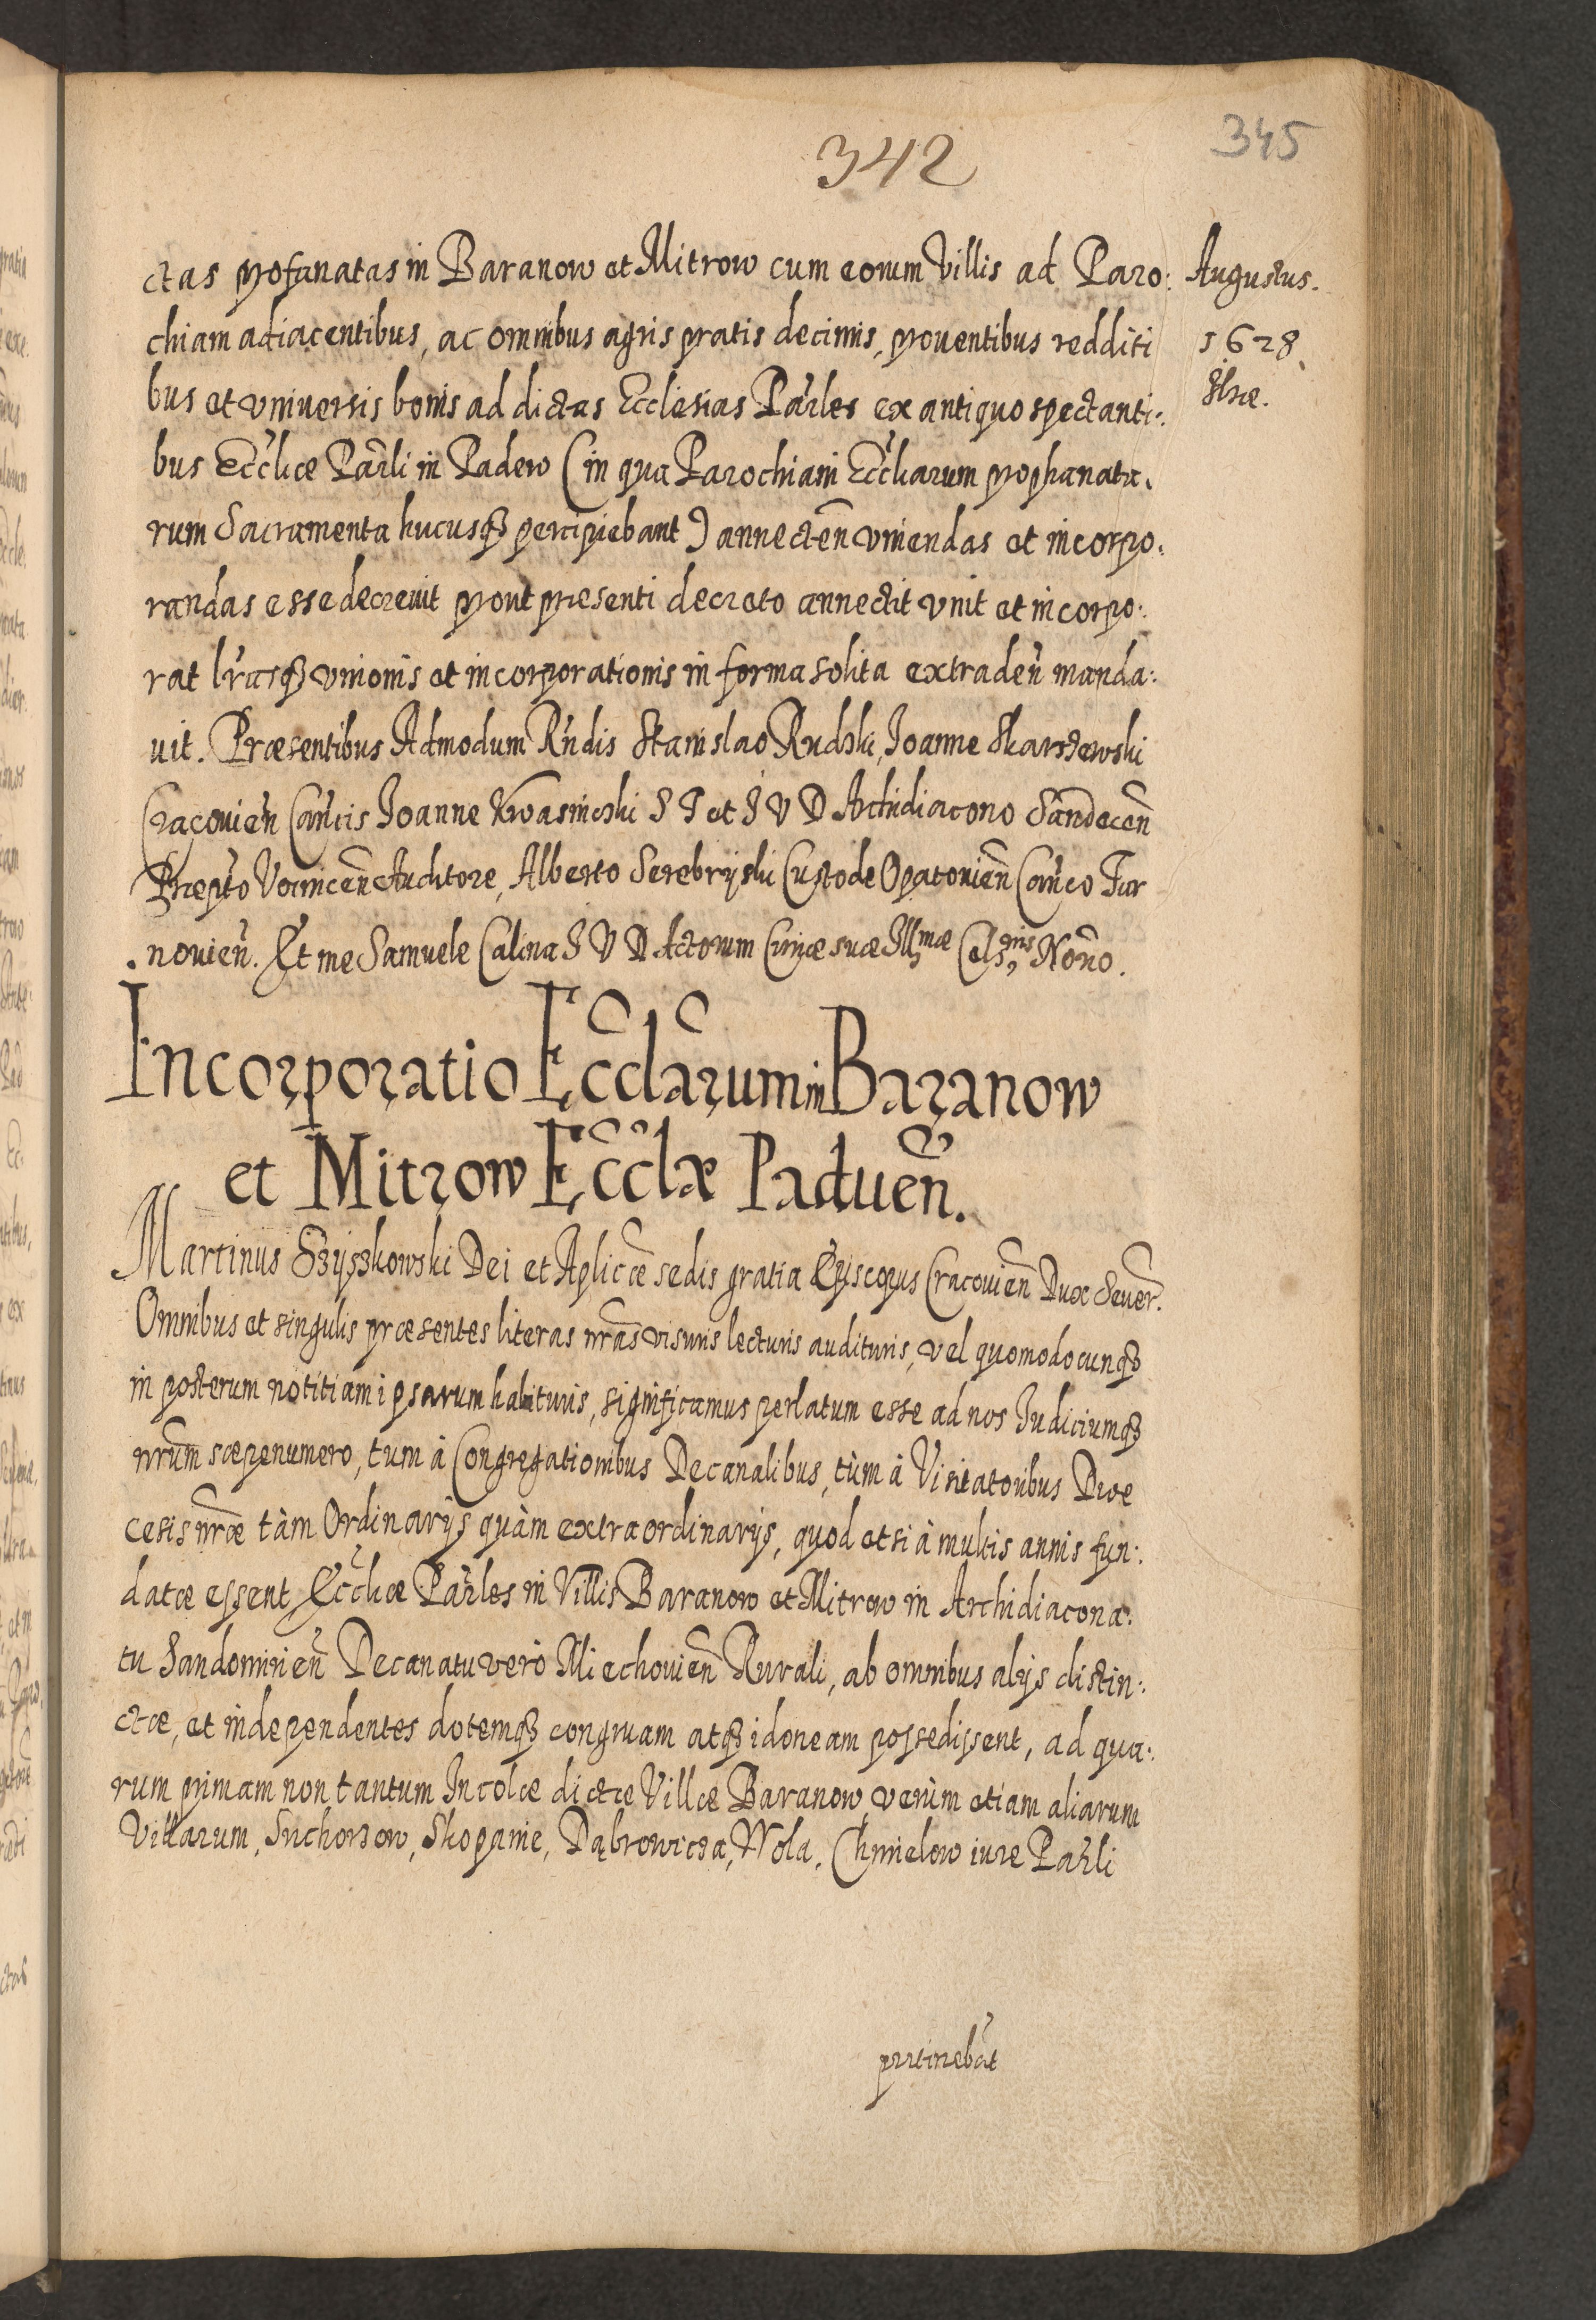 342
345
ctas profanatas in Baranow et Mitrow cum eorum Villis ad Paro:
Augustus.
chiam adiacentibus, ac omnibus agris pratis decimis, prouentibus redditi
1628.
bus et vniuersis bonis ad dictas Ecclesias Parles ex antiquo spectanti:
bus Ecclice Parli in Padew (in qua Parochiani Eccliarum prophanata.
rum Sacramenta hucusq3 percipiebant) annecten vniendas et incorpo.
randas esse decreuit prout presenti decreto annectit vnit et incorpo:
rat lrasq3 vnionis et incorporationis in forma solita extraden manda:
uit. Præsentibus Admodum Rndis Stanislao Rudzki, Joanne Skarszewski
Cracouien Cancis Joanne Kwasniczki S T et J V D Archidiacono Sandecen
Præpto Voinicen Auditore, Alberto Serebrijski Custode Opatouien Canco Tar
nouien. Et me Samuele Calina J V D Actorum Curiæ suæ Illmæ Celsnis Norio.
Incorporatio Ecclarum in Baranow
et Mitrow Ecclæ Paduen.
Martinus Szijszkowski Dei et Aplicæ sedis gratia Episcopus Cracouien Dux Seuer.
Omnibus et singulis præsentes literas nras visuris lecturis audituris, vel quomodocunq3
in posterum notitiam ipsarum habituris, significamus perlatum esse ad nos Judiciumq3
nrum sæpenumero, tum à Congregationibus Decanalibus, tùm à Visitatoribus Dioe
cesis nræ tàm Ordinarijs quàm extraordinarijs, quod etsi à multis annis fun:
datæ essent Eccliæ Parles in Villis Baranow et Mitrow in Archidiacona:
tu Sandomirien Decanatu verò Miechouien Rurali, ab omnibus alijs distin:
ctæ, et independentes dotemq3 congruam atq3 idoneam possedissent, ad qua:
rum primam non tantum Incolæ dictæ Villæ Baranow, verùm etiam aliarum
Villarum, Suchorzow, Skopanie, Dąbrowicza, Wola, Chmielow iure Parli
prtinebat